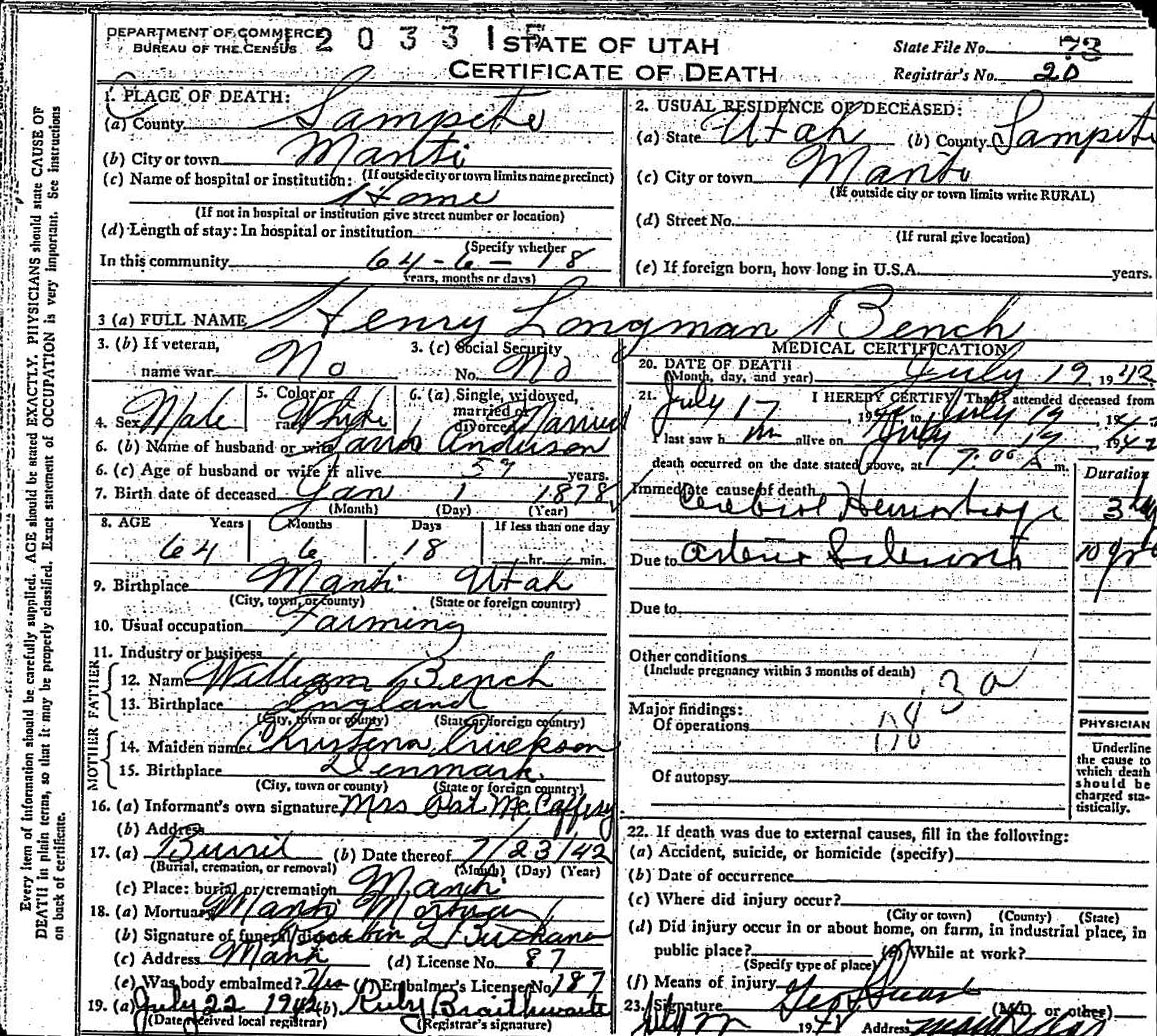 DEPARTMENT OF COMMERCE
BUREAU OF THE CENSUS
2 0 3 3 1 5
STATE OF UTAH
CERTIFICATE OF DEATH
State File No. 73
Registrar's No. 20
Every item of information should be carefully supplied. AGE should be stated EXACTLY. PHYSICIANS should state CAUSE OF
DEATH in plain terms, so that it may be properly classified. Exact statement of OCCUPATION is very important. See instructions
on back of certificate.
1. PLACE OF DEATH:
(a) County Sanpete
(b) City or town Manti
(If outside city or town limits name precinct)
(c) Name of hospital or institution:
Home
(If not in hospital or institution give street number or location)
(d) Length of stay: In hospital or institution
(Specify whether
In this community 64-6-18
years, months or days)
2. USUAL RESIDENCE OF DECEASED:
(a) State Utah (b) County Sanpete
(c) City or town Manti
(If outside city or town limits write RURAL)
(d) Street No.
(If rural give location)
(e) If foreign born, how long in U.S.A. years.
3 (a) FULL NAME Henry Longman Bench
3. (b) If veteran,
name war No
3. (c) Social Security
No. No
4. Sex Male
5. Color or
race White
6. (a) Single, widowed,
married or
divorced Married
6. (b) Name of husband or wife Anderson
6. (c) Age of husband or wife if alive 59 years.
7. Birth date of deceased Jan 1 1878
(Month) (Day) (Year)
8. AGE Years Months Days If less than one day
64 6 18 hr. min.
9. Birthplace Manti Utah
(City, town, or county) (State or foreign country)
10. Usual occupation Farming
11. Industry or business
FATHER
12. Name William Bench
13. Birthplace England
(City, town or county) (State or foreign country)
MOTHER
14. Maiden name Christena Erickson
15. Birthplace Denmark
(City, town or county) (State or foreign country)
16. (a) Informant's own signature Mrs Pat McCaffery
(b) Address
17. (a) Buriel (b) Date thereof 7/23/42
(Burial, cremation, or removal) (Month) (Day) (Year)
(c) Place: burial or cremation Manti
18. (a) Mortuary Manti Mortuary
(b) Signature of funeral director
(c) Address Manti (d) License No. 87
(e) Was body embalmed? Yes (f) Embalmer's License No 187
19. (a) July 22 1942 (b) Ruby Braithwaite
(Date received local registrar) (Registrar's signature)
MEDICAL CERTIFICATION
20. DATE OF DEATH
(Month, day, and year) July 19, 1942
21. I HEREBY CERTIFY, That I attended deceased from
July 17, 1942 to July 19, 1942
I last saw him alive on July 19 1942
death occurred on the date stated above, at 7:00 A m.
Duration
Immediate cause of death
Cerebral Hemorrhage 3 days
Due to Arterio Sclerosis 10 yrs
Due to
Other conditions
(Include pregnancy within 3 months of death)
83a
Major findings:
Of operations
Of autopsy
PHYSICIAN
Underline
the cause to
which death
should be
charged sta-
tistically.
22. If death was due to external causes, fill in the following:
(a) Accident, suicide, or homicide (specify)
(b) Date of occurrence
(c) Where did injury occur?
(City or town) (County) (State)
(d) Did injury occur in or about home, on farm, in industrial place, in
public place? (e) While at work?
(Specify type of place)
(f) Means of injury
23. Signature (M.D. or other)
Address